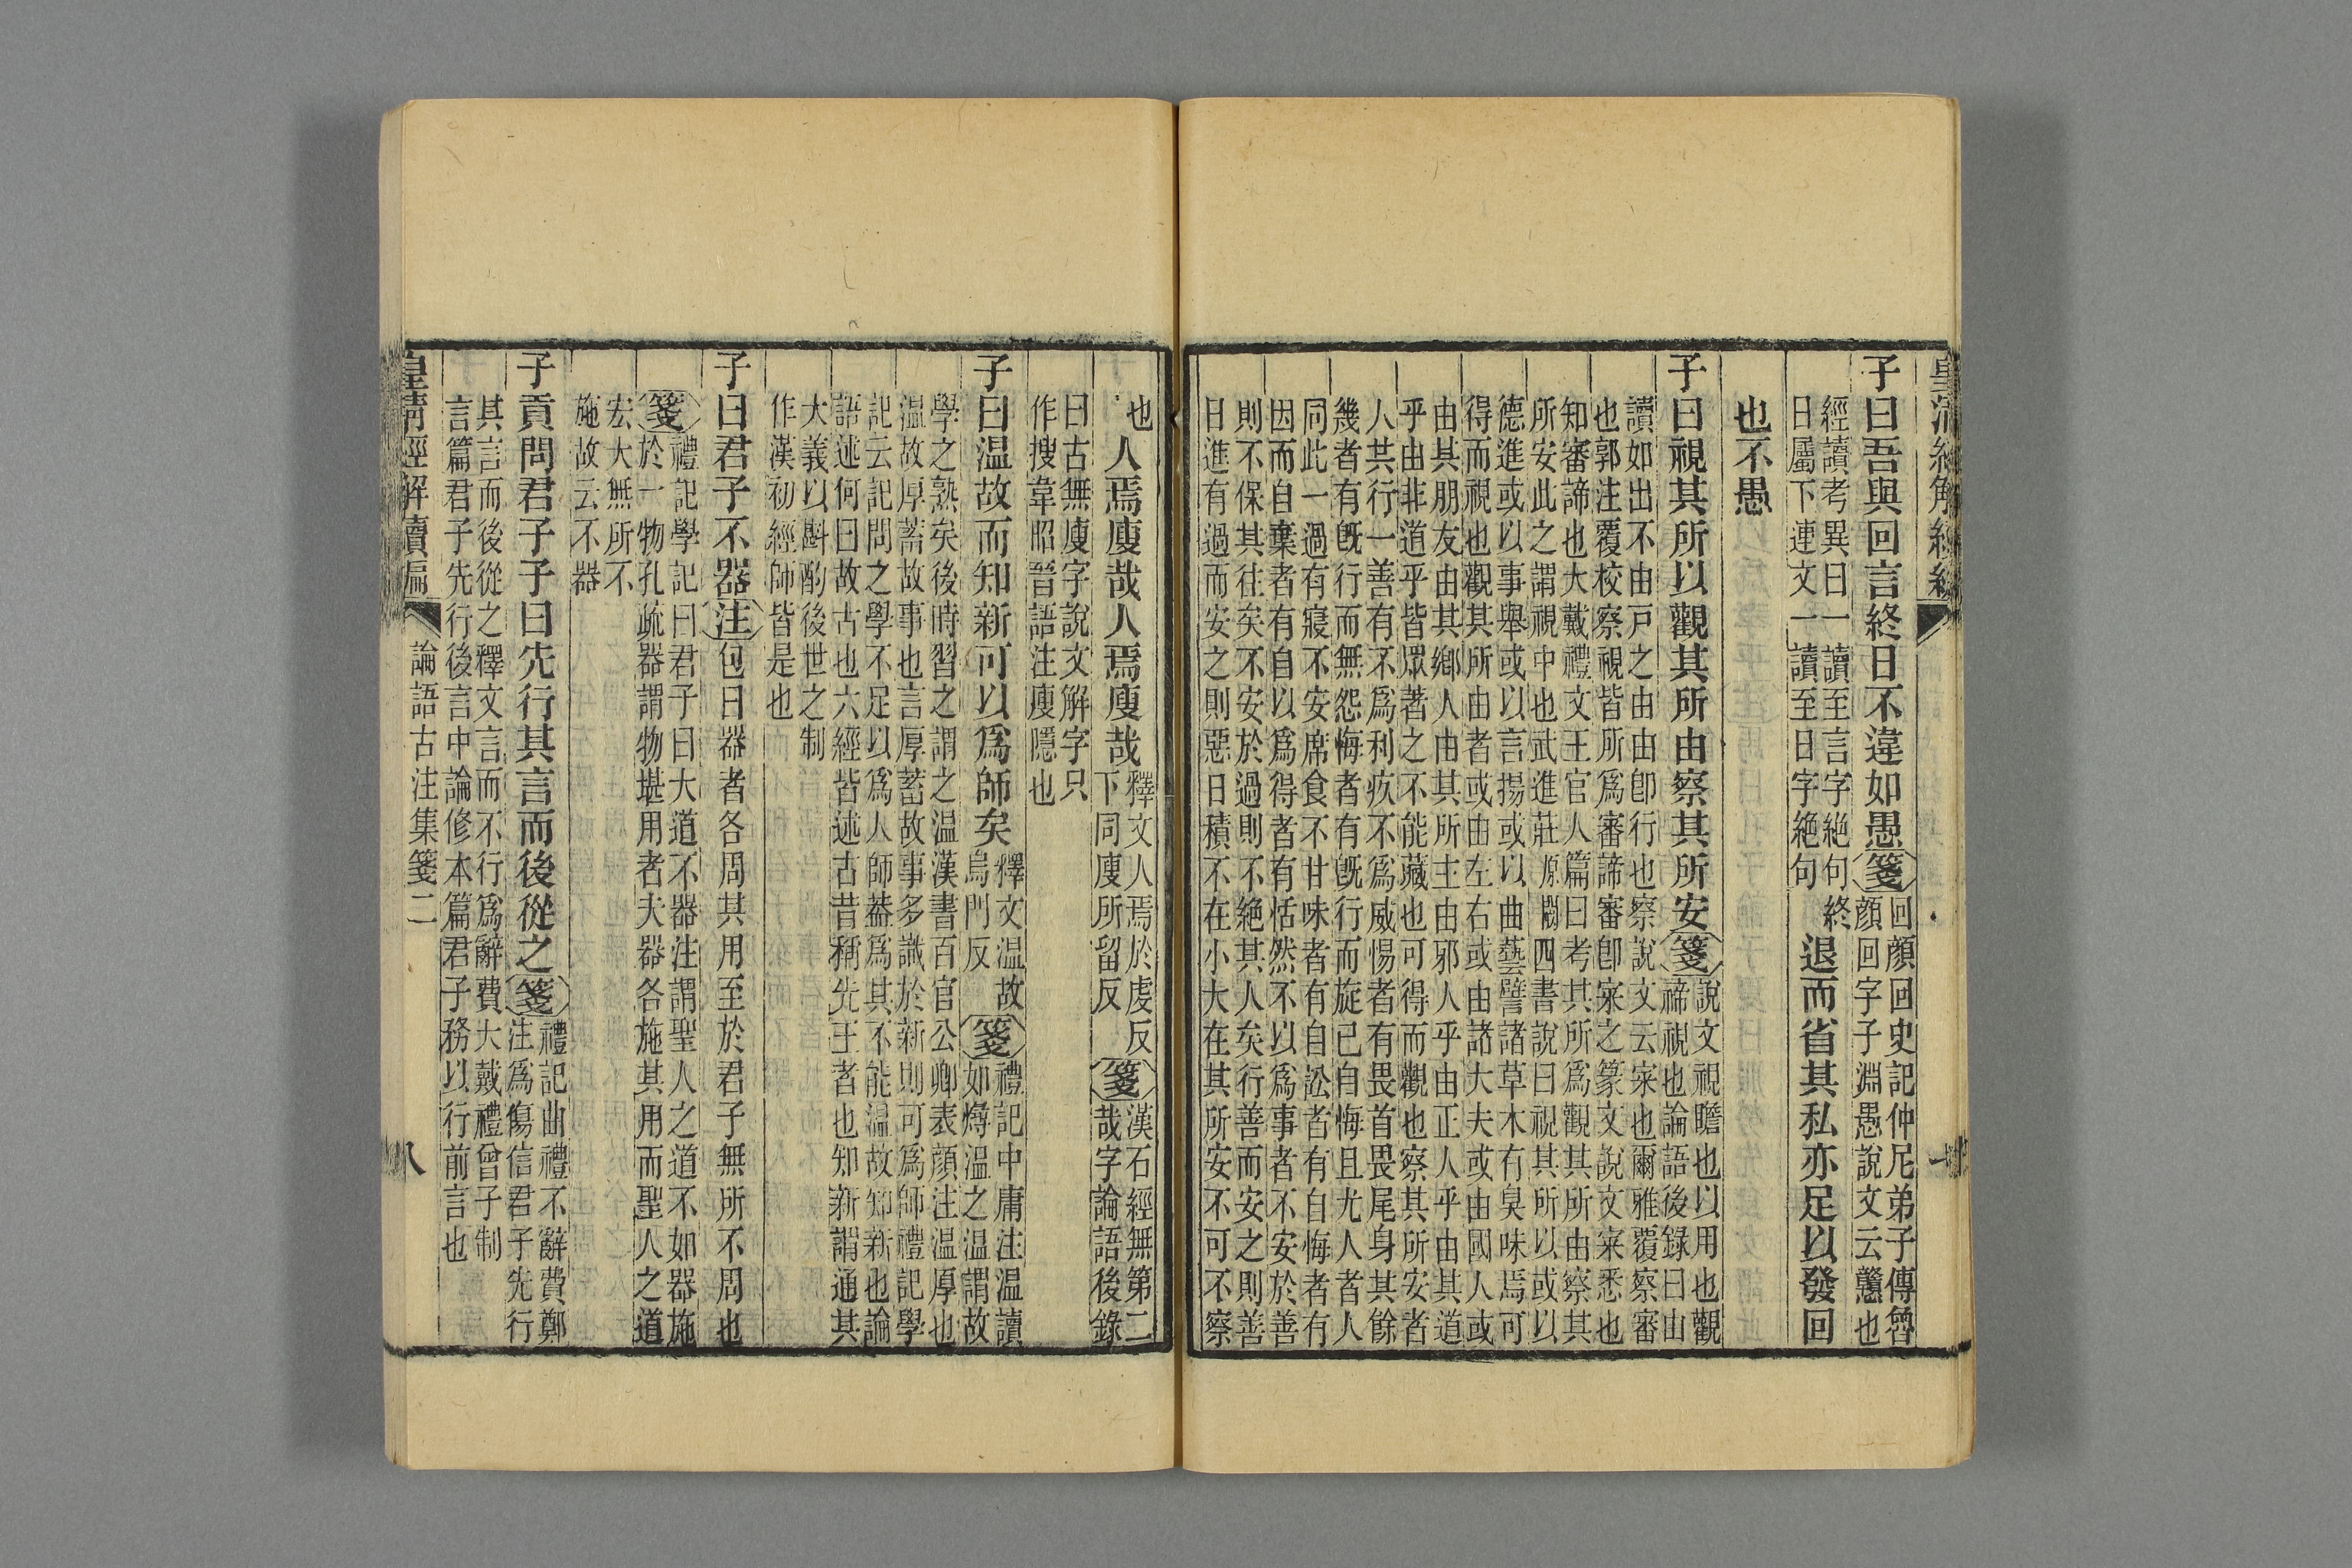 子曰吾與回言終日不違如愚箋回顏回史記仲尼弟子傳魯
顏回字子淵愚說文云戇也
經讀考異曰一讀至言字絕句終
日屬下連文一讀至日字絕句
退而省其私亦足以發回
也不愚
子曰視其所以觀其所由察其所安箋說文視瞻也以用也觀
諦視也論語後錄曰由
讀如出不由戶之由由卽行也察說文云寀也爾雅覆察審
也郭注覆校察視皆所爲審諦審卽寀之篆文說文寀悉也
知審諦也大戴禮文王官人篇曰考其所爲觀其所由察其
所安此之謂視中也武進莊原闕四書說曰視其所以或以
德進或以事舉或以言揚或以曲藝譬諸草木有臭味焉可
得而視也觀其所由者或由左右或由諸大夫或由國人或
由其朋友由其鄉人由其所主由邪人乎由正人乎由其道
乎由非道乎皆眾著之不能藏也可得而觀也察其所安者
人共行一善有不爲利疚不爲威惕者有畏首畏尾身其餘
幾者有旣行而無怨悔者有旣行而旋已自悔且尤人者人
同此一過有寢不安席食不甘味者有自訟者有自悔者有
因而自棄者有自以爲得者有恬然不以爲事者不安於善
則不保其往矣不安於過則不絕其人矣行善而安之則善
日進有過而安之則惡日積不在小大在其所安不可不察
也人焉廋哉人焉廋哉釋文人焉於虔反
下同廋所留反
箋漢石經無第二
哉字論語後錄
曰古無廋字說文解字只
作搜韋昭晉語注廋隱也
子曰温故而知新可以爲師矣釋文温故
烏門反
箋禮記中庸注温讀
如燖温之温謂故
學之熟矣後時習之謂之温漢書百官公卿表顏注温厚也
温故厚蓄故事也言厚蓄故事多識於新則可爲師禮記學
記云記問之學不足以爲人師葢爲其不能温故知新也論
語述何曰故古也六經皆述古昔稱先王者也知新謂通其
大義以斟酌後世之制
作漢初經師皆是也
子曰君子不器注包曰器者各周其用至於君子無所不周也
箋禮記學記曰君子曰大道不器注謂聖人之道不如器施
於一物孔疏器謂物堪用者夫器各施其用而聖人之道
宏大無所不
施故云不器
子貢問君子子曰先行其言而後從之箋禮記曲禮不辭費鄭
注爲傷信君子先行
其言而後從之釋文言而不行爲辭費大戴禮曾子制
言篇君子先行後言中論修本篇君子務以行前言也
皇清經解續編 論語古注集箋二 八